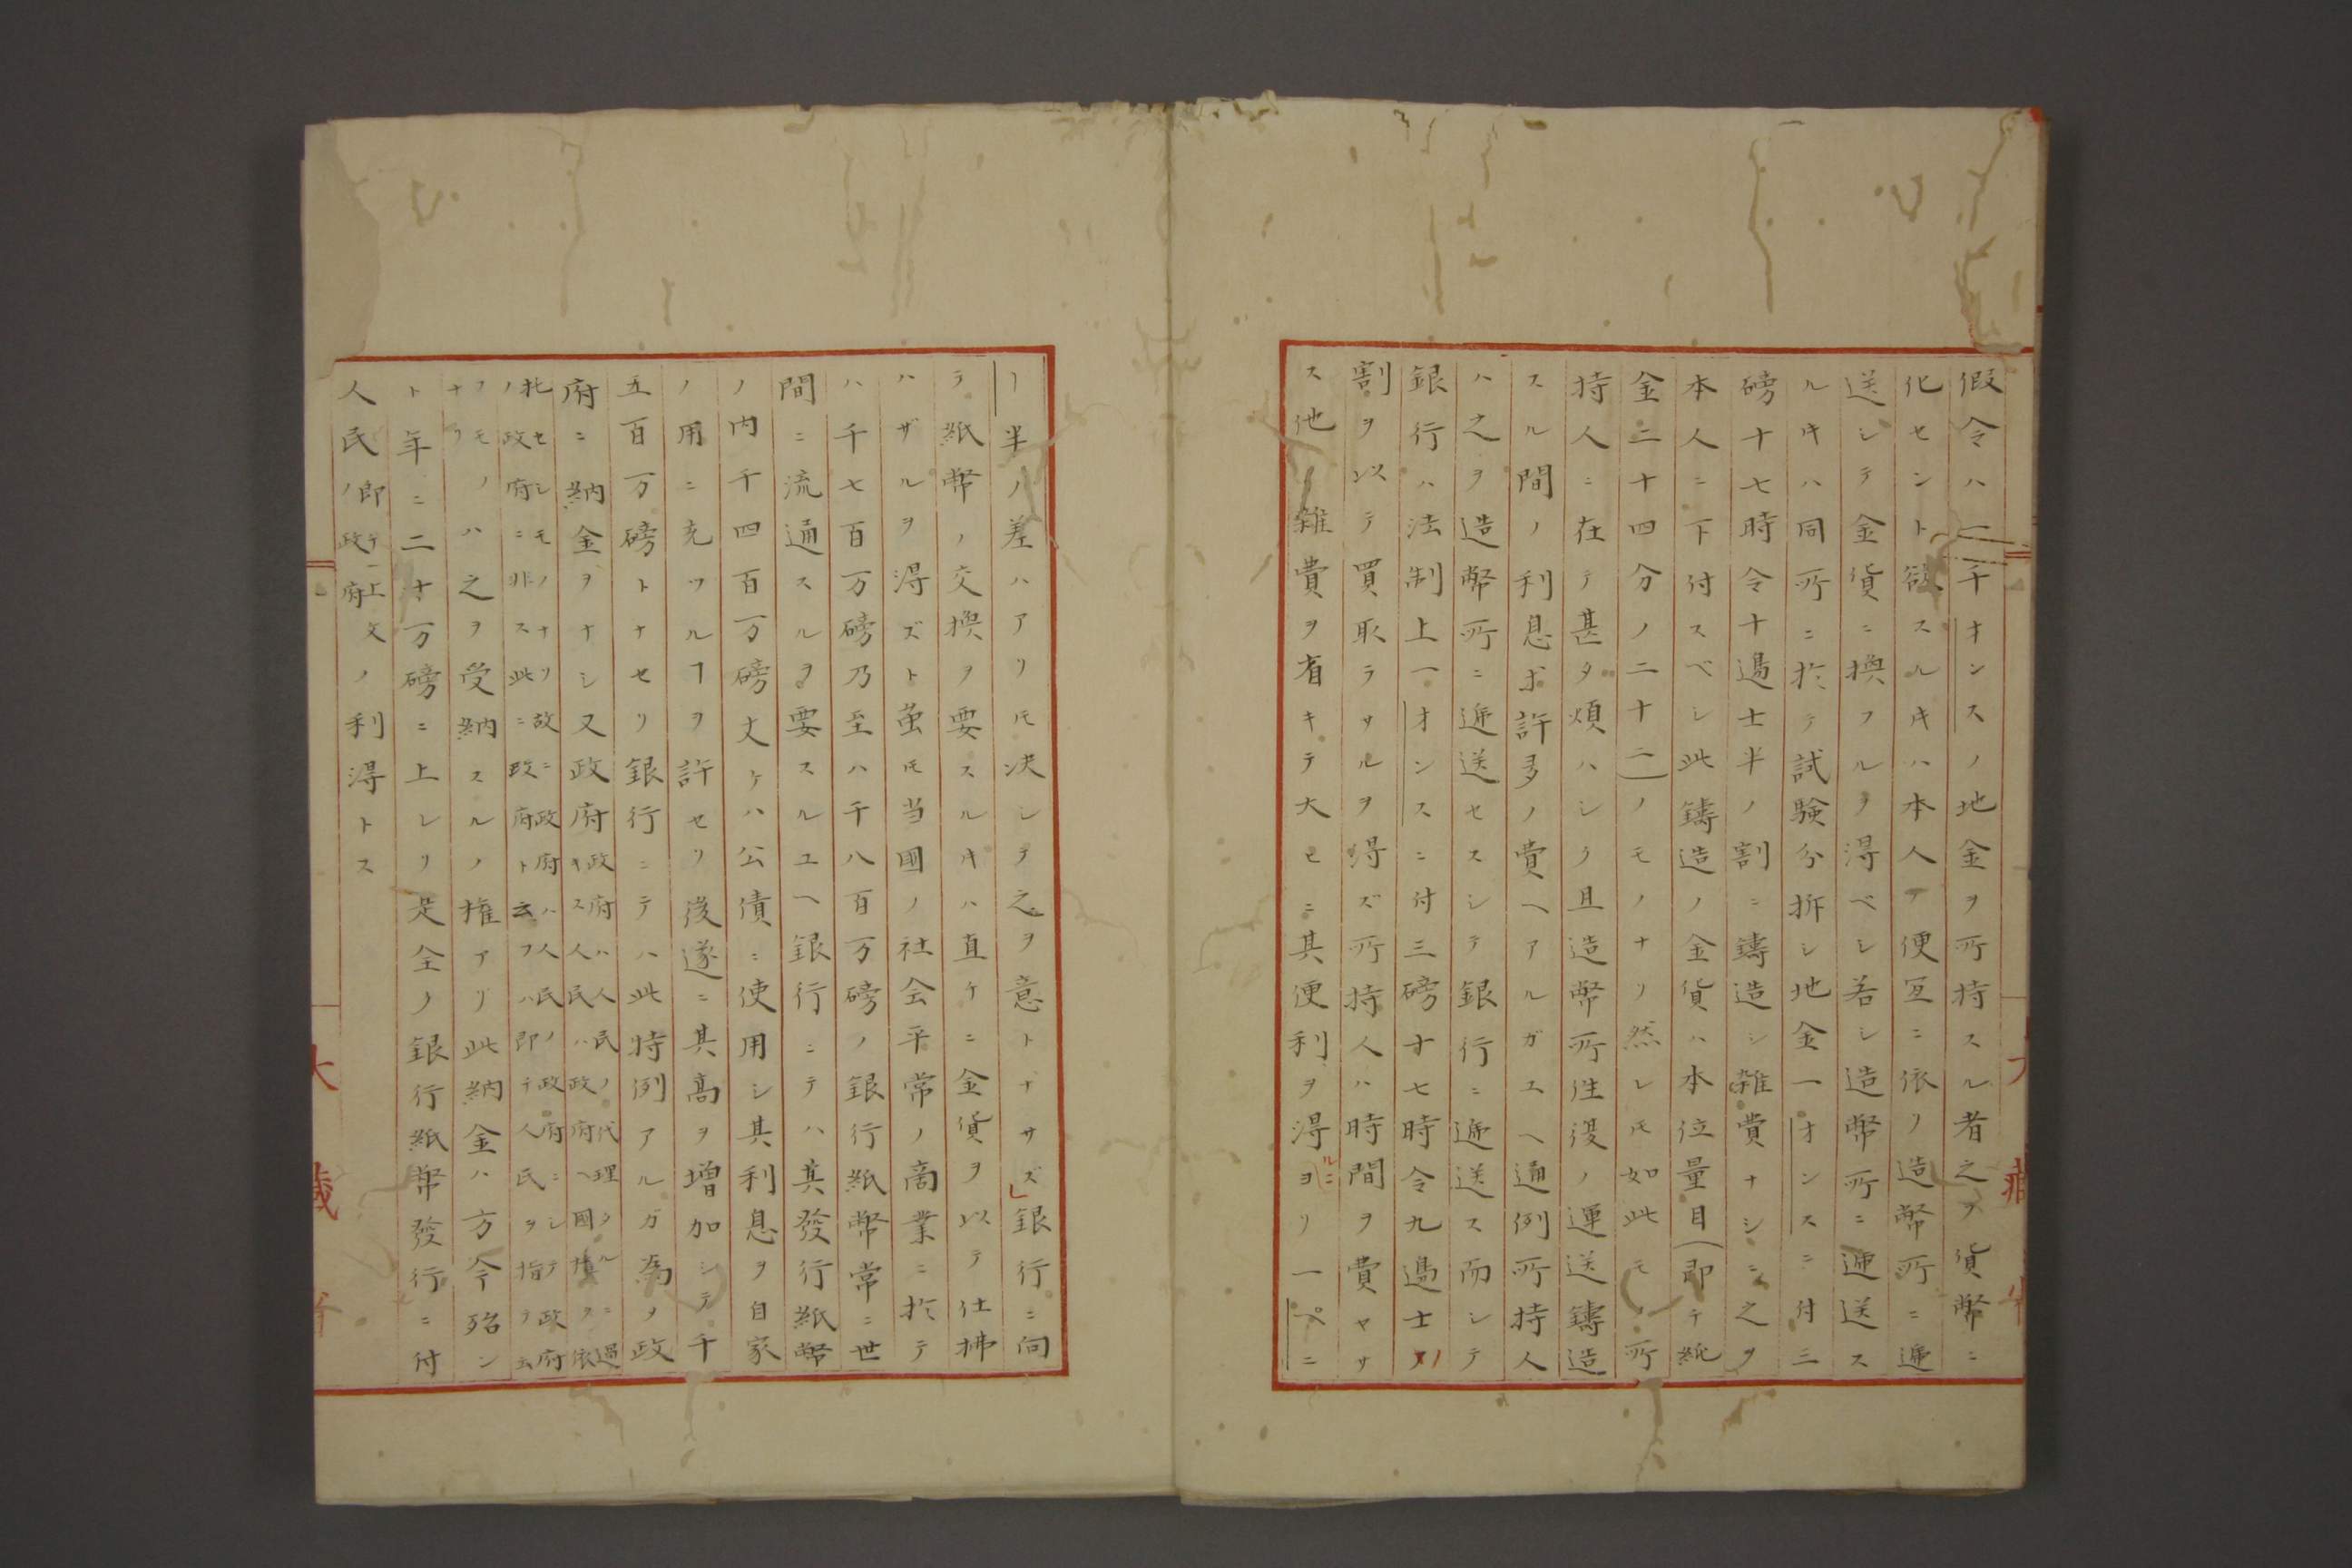 假令ハ二千オンスノ地金ヲ所持スル者之ヲ貨幣ニ
化セント欲スル𪜈ハ本人ノ便宜ニ依リ造幣所ニ逓
送シテ金貨ニ換フルヲ得ベシ若シ造幣所ニ逓送ス
ルキハ同所ニ於テ試験分拆シ地金一オンスニ付三
磅十七時令十邊士半ノ割ニ鑄造シ雑費ナシニ之ヲ
本人ニ下付スベシ此鑄造ノ金貨ハ本位量目(即チ純
金二十四分ノ二十二)ノモノナリ然レ𪜈如此モノ所
持人ニ在テ甚タ煩ハシク且造幣所往復ノ運送鑄造
スル間ノ利息ホ許多ノ費ヘアルガユヘ通例所持人
ハ之ヲ造幣所ニ逓送セスシテ銀行ニ逓送ス而シテ
銀行ハ法制上一オンスニ付三磅十七時令九邊士ノ
割ヲ以テ買取ラサルヲ得ズ所持人ハ時間ヲ費ヤサ
ス他ノ雑費ヲ省キテ大ヒニ其便利ヲ得ルニヨリ一ペニ
ー半ノ差ハアリ𪜈決シテ之ヲ意トナサズ」銀行ニ向
テ紙幣ノ交換ヲ要スルキハ直ケニ金貨ヲ以テ仕拂
ハザルヲ得ズト虽𪜈当國ノ社会平常ノ商業ニ於テ
ハ千七百万磅乃至ハ千八百万磅ノ銀行紙幣常ニ世
間ニ流通スルヲ要スルユヘ銀行ニテハ其發行紙幣
ノ内千四百万磅丈ケハ公債ニ使用シ其利息ヲ自家
ノ用ニ充ツルヿヲ許セリ後遂ニ其高ヲ増加シテ千
五百万磅トナセリ銀行ニテハ此特例アルガ為ノ政
府ニ納金ヲナシ又政府政府ハ人民ノ代理タルニ過キス人民ハ政府ヘ國権ヲ依
托セシモノナリ故ニ政府ハ人民ノ政府ニシテ政府ノ政府ニ非ス此ニ政府ト云フハ即チ人民ヲ指テ云
フモノナリハ之ヲ受納スルノ権アリ此納金ハ方今殆ン
ト年ニ二十万磅ニ上レリ是全ク銀行紙幣發行ニ付
人民ノ即チ上文ノ政府利得トス
大藏省
大藏省